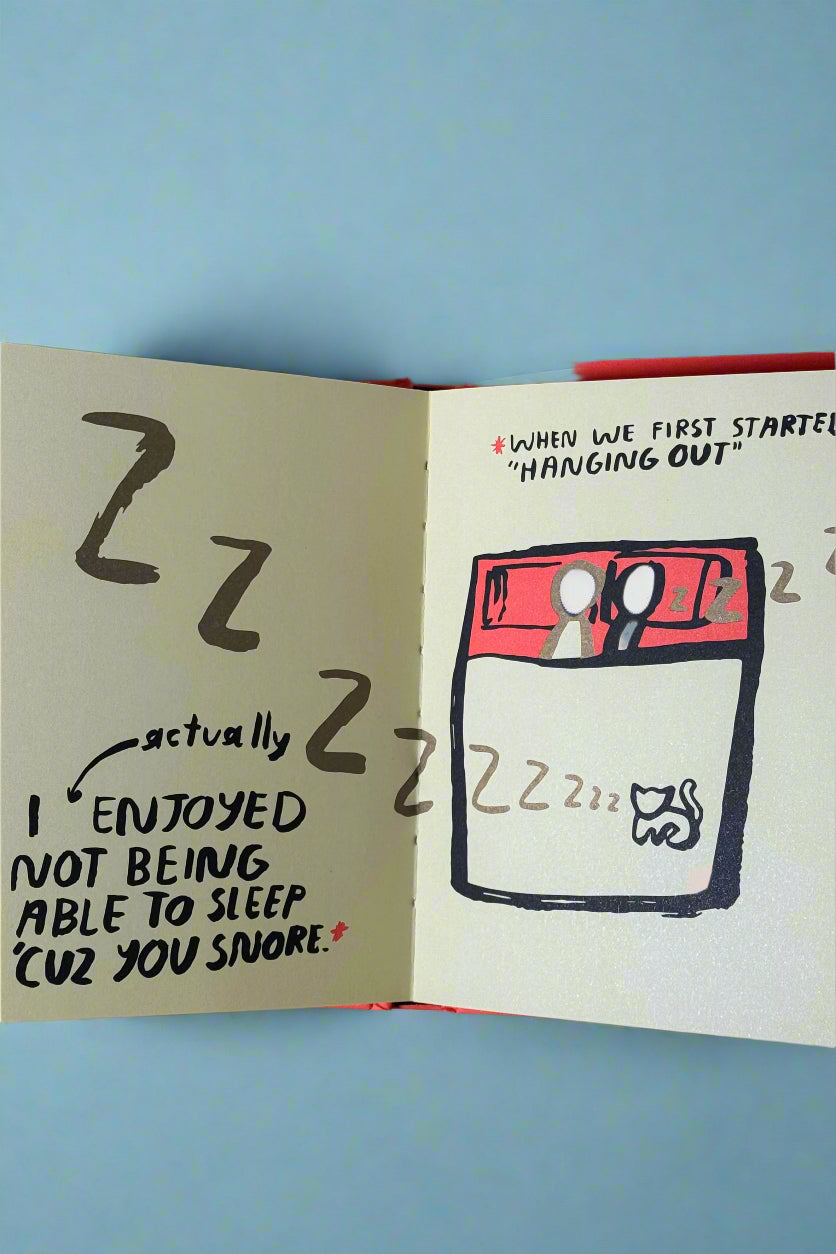 Z
Z
Z
Z
actually
I ENJOYED
NOT BEING
ABLE TO SLEEP
'CUZ YOU SNORE.*
*WHEN WE FIRST STARTED
"HANGING OUT"
Z Z Z Z
Z Z Z Z Z